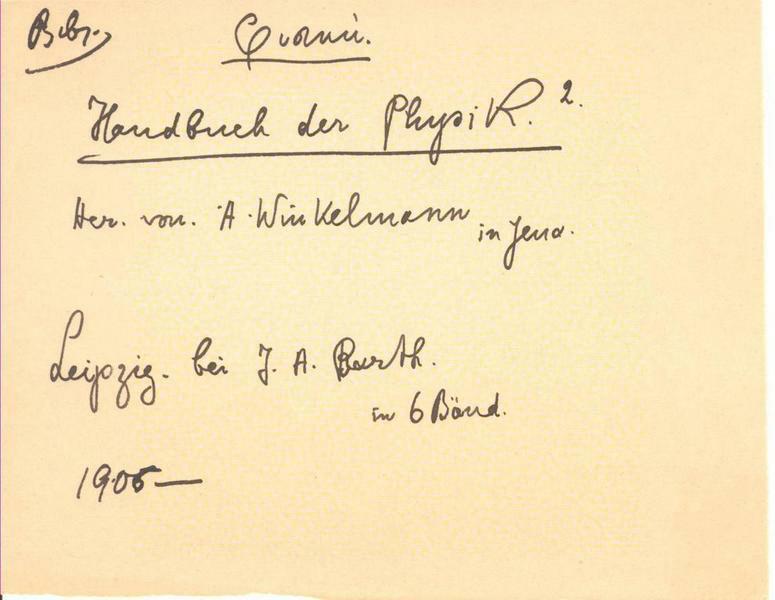 Handbuch der Physik. 2.
Her. von. A. Winkelmann in Jena.
Leipzig. bei J. A. Barth.
in 6 Bänd.
1905—